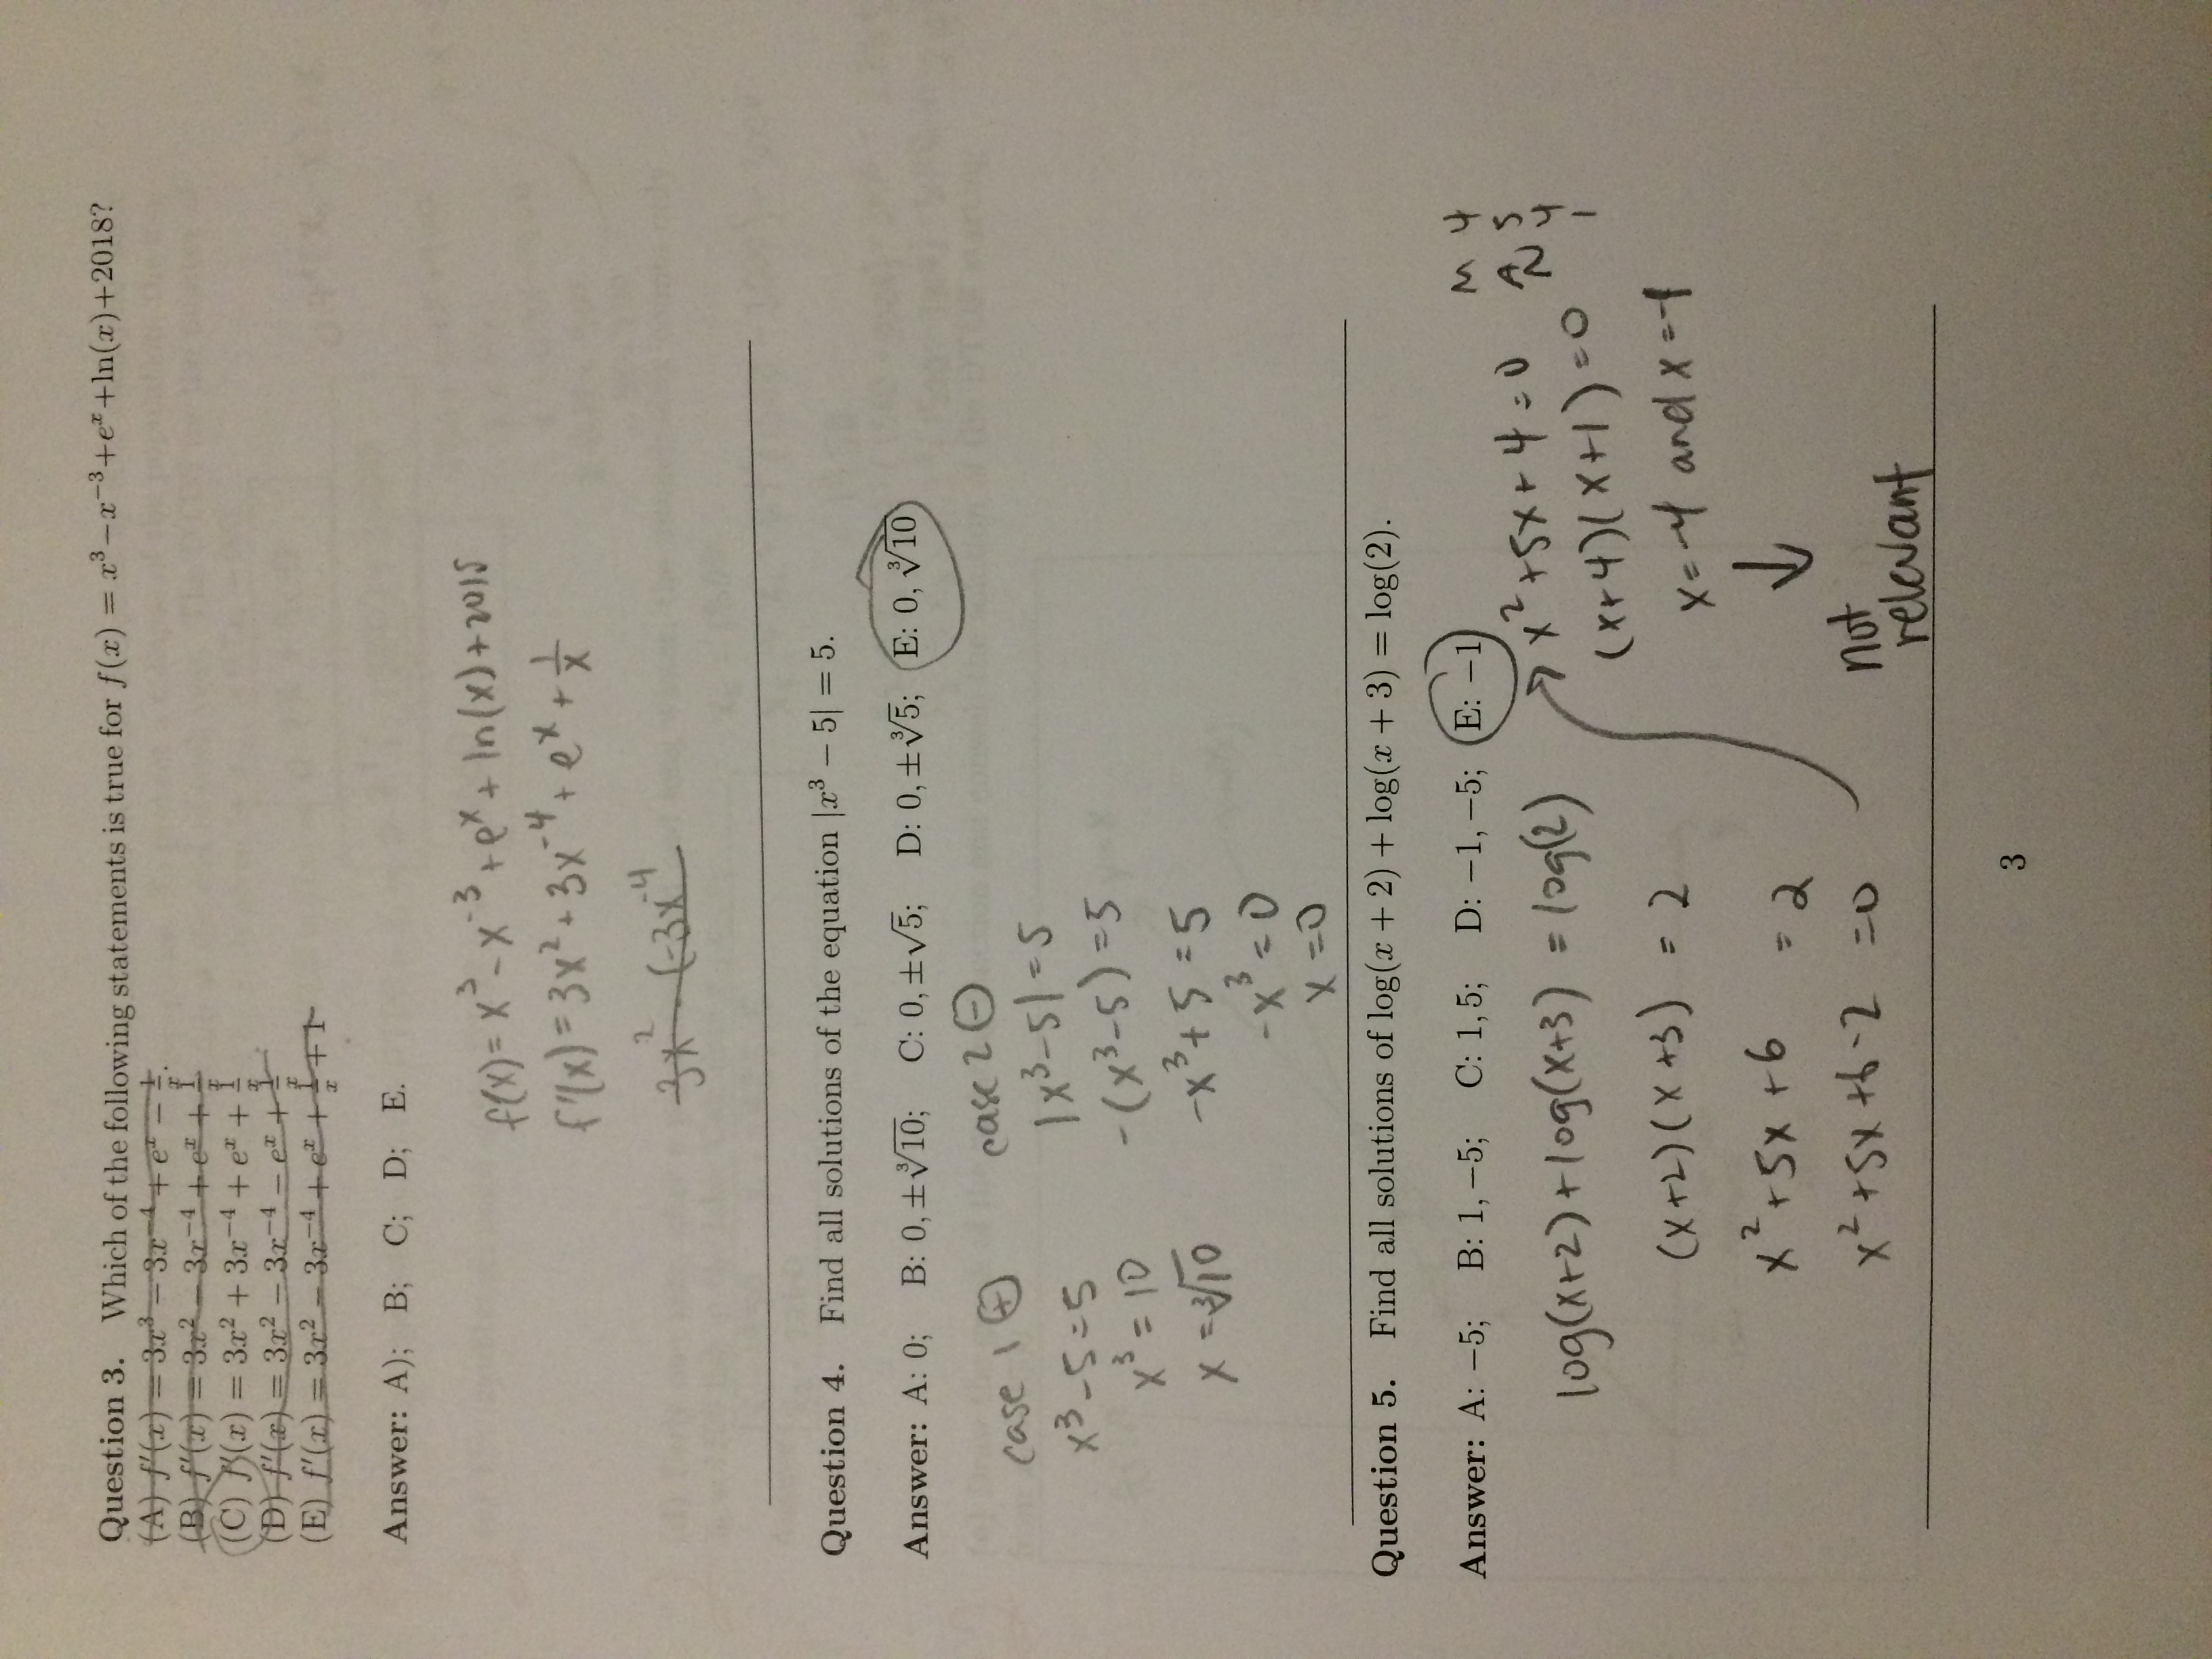 Question 3. Which of the following statements is true for f(x) = x³−x⁻³+eˣ+ln(x)+2018?
(A) f′(x) = 3x³ − 3x⁻⁴ + eˣ − 1/x.
(B) f′(x) = 3x² − 3x⁻⁴ + eˣ + 1/x
(C) f′(x) = 3x² + 3x⁻⁴ + eˣ + 1/x
(D) f′(x) = 3x² − 3x⁻⁴ − eˣ + 1/x
(E) f′(x) = 3x² − 3x⁻⁴ + eˣ + 1/x + 1
Answer: A); B; C; D; E.
f(x) = x³ − x⁻³ + eˣ + ln(x) + 2018
f′(x) = 3x² + 3x⁻⁴ + eˣ + 1/x
3x² − (−3x⁻⁴
Question 4. Find all solutions of the equation |x³ − 5| = 5.
Answer: A: 0; B: 0, ±∛10; C: 0, ±√5; D: 0, ±∛5; E: 0, ∛10
case 1 ⊕
x³ − 5 = 5
x³ = 10
x = ∛10
case 2 ⊖
|x³ − 5| = 5
−(x³ − 5) = 5
−x³ + 5 = 5
−x³ = 0
x = 0
Question 5. Find all solutions of log(x + 2) + log(x + 3) = log(2).
Answer: A: −5; B: 1, −5; C: 1, 5; D: −1, −5; E: −1
log(x+2) + log(x+3) = log(2)
(x+2)(x+3) = 2
x² + 5x + 6 = 2
x² + 5x + 6 − 2 = 0
x² + 5x + 4 = 0
(x+4)(x+1) = 0
x = −4 and x = −1
↓
not
relevant
M 4
A 5
4
1
3